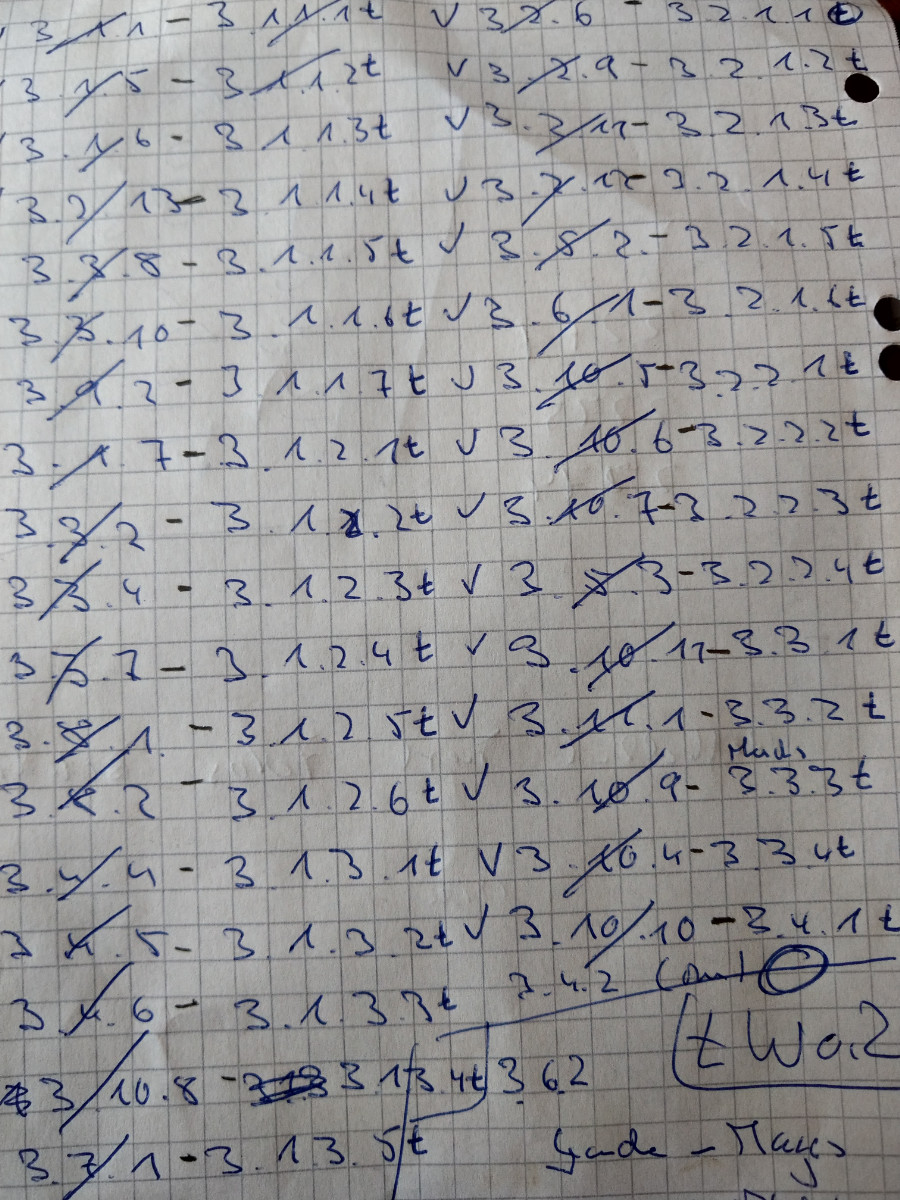 3.1.1 - 3.1.1.1t √ 3.2.6 - 3.2.1.1t
3.1.5 - 3.1.1.2t √ 3.2.9 - 3.2.1.2t
3.1.6 - 3.1.1.3t √ 3.2.11 - 3.2.1.3t
3.2.13 - 3.1.1.4t √ 3.2.12 - 3.2.1.4t
3.3.8 - 3.1.1.5t √ 3.5.2 - 3.2.1.5t
3.3.10 - 3.1.1.6t √ 3.6.1 - 3.2.1.6t
3.9.2 - 3.1.1.7t √ 3.10.5 - 3.2.2.1t
3.1.7 - 3.1.2.1t √ 3.10.6 - 3.2.2.2t
3.3.2 - 3.1.2.2t √ 3.10.7 - 3.2.2.3t
3.3.4 - 3.1.2.3t √ 3.5.3 - 3.2.2.4t
3.3.7 - 3.1.2.4t √ 3.10.11 - 3.3.1t
3.8.1 - 3.1.2.5t √ 3.11.1 - 3.3.2t
3.4.2 - 3.1.2.6t √ 3.10.9 - 3.3.3t
3.4.4 - 3.1.3.1t √ 3.10.4 - 3.3.4t
3.4.5 - 3.1.3.2t √ 3.10.10 - 3.4.1t
3.4.2
3.4.6 - 3.1.3.3t
3.10.8 - 3.1.3.4t 3.6.2
3.7.1 - 3.1.3.5t